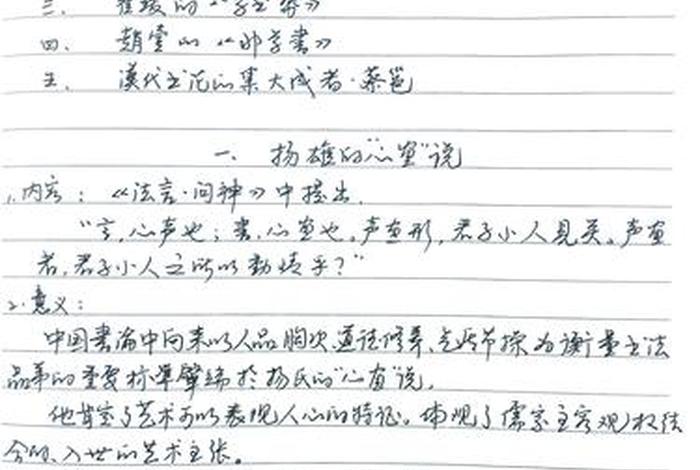 三、 崔瑗的《草书势》
四、 趙壹的《非草書》
五、 漢代书论的集大成者·蔡邕
一、 扬雄的"心画"说
1.内容：《法言·问神》中提出.
"言,心声也；書,心画也。声画形,君子小人見矣。声画
者,君子小人之所以動情乎？"
2.意义：
中国書论中向来以人品、胸次、道德修养、气质节操为衡量书法
品第的重要标準肇端於扬氏的"心画"说.
他肯定了艺术可以表现人心的特征。体现了儒家主客观相结
合的、入世的艺术主张。